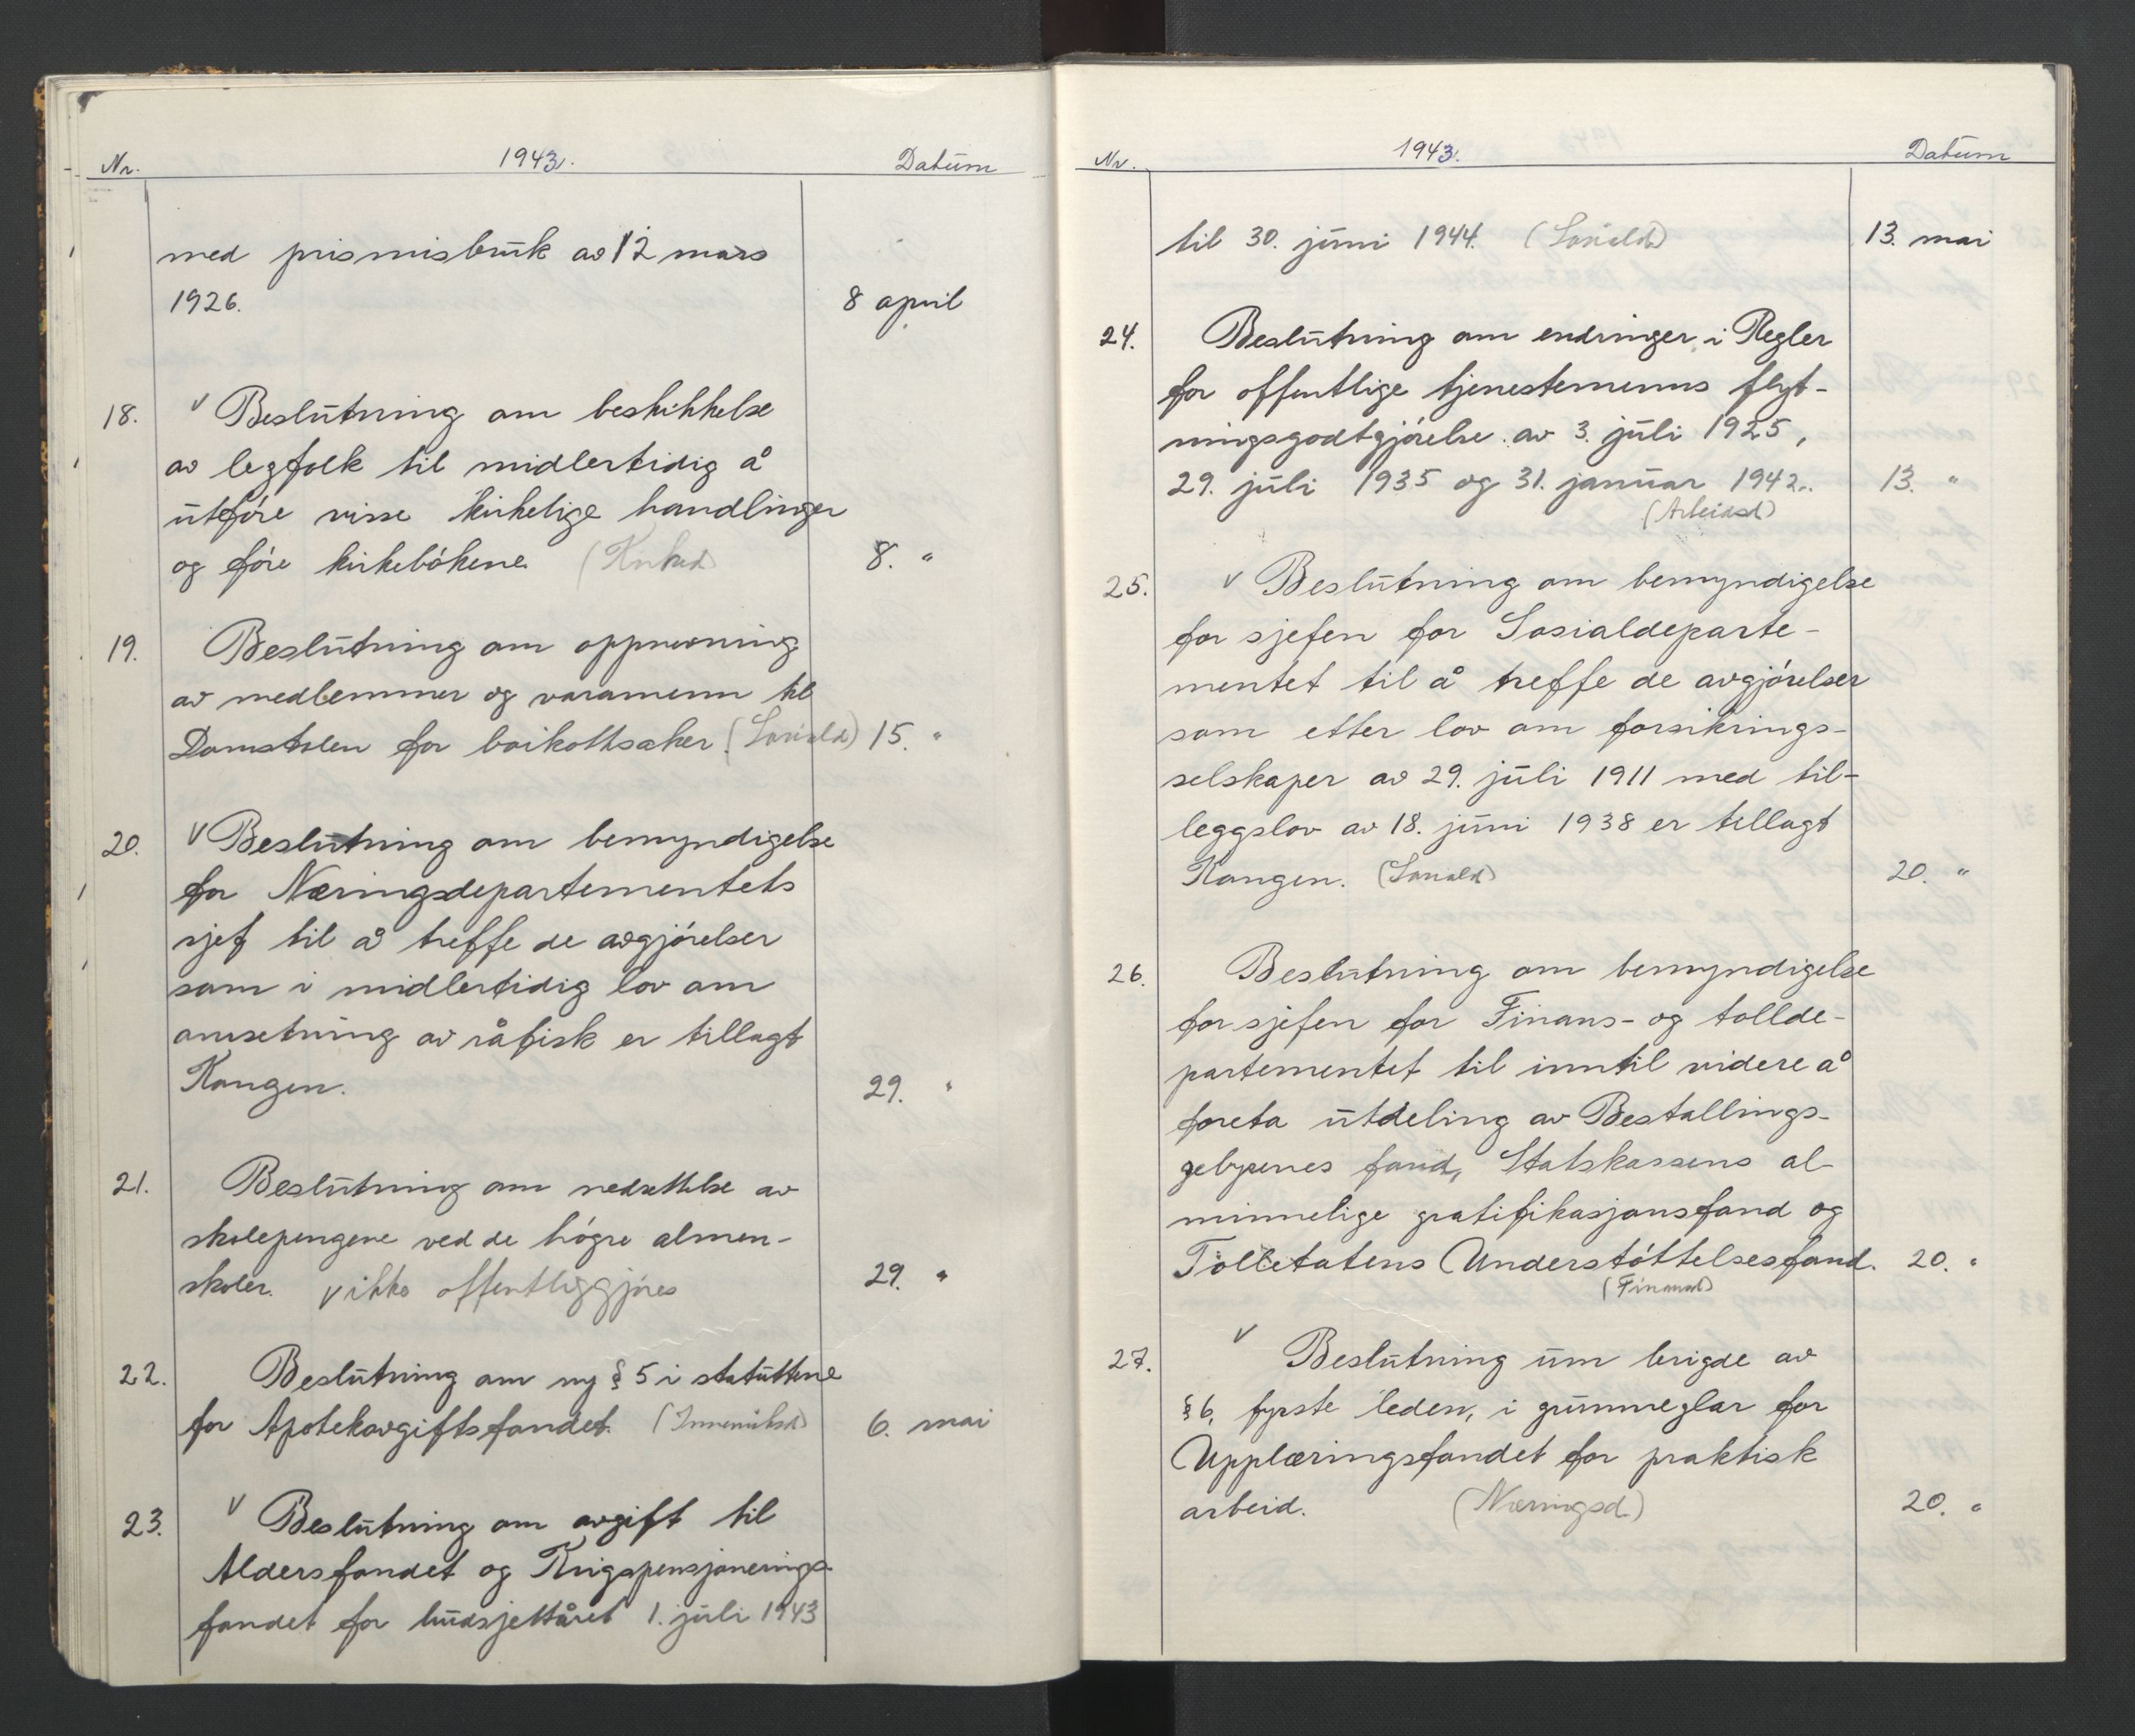 Nr. 1943. Datum
med prismisbruk av 12 mars
1926. 8 april
18. v Beslutning om beskikkelse
av legfolk til midlertidig å
utføre visse kirkelige handlinger
og føre kirkebøkene. (Kirked) 8. "
19. Beslutning om oppnevning
av medlemmer og varamenn til
Domstolen for boikottsaker. (Sosiald) 15. "
20. v Beslutning om bemyndigelse
for Næringsdepartementets
sjef til å treffe de avgjørelser
som i midlertidig lov om
omsetning av råfisk er tillagt
Kongen. 29. "
21. Beslutning om nedsettelse av
skolepengene ved de høgre almen-
skoler. v ikke offentliggjøres 29. "
22. Beslutning om ny § 5 i statuttene
for Apotekavgiftsfondet. (Innenriksd) 6. mai
23. v Beslutning om avgift til
Aldersfondet og Krigspensjonerings-
fondet for budsjettåret 1. juli 1943
Nr. 1943. Datum
til 30. juni 1944. (Sosiald) 13. mai
24. Beslutning om endringer i Regler
for offentlige tjenestemenns flyt-
ningsgodtgjørelse av 3. juli 1925,
29. juli 1935 og 31. januar 1942. 13. "
(Arbeidsd)
25. v Beslutning om bemyndigelse
for sjefen for Sosialdeparte-
mentet til å treffe de avgjørelser
som etter lov om forsikrings-
selskaper av 29. juli 1911 med til-
leggslov av 18. juni 1938 er tillagt
Kongen. (Sosiald) 20. "
26. Beslutning om bemyndigelse
for sjefen for Finans- og tollde-
partementet til inntil videre å
foreta utdeling av Bestallings-
gebyrenes fond, Statskassens al-
minnelige gratifikasjonsfond og
Tolletatens Understøttelsesfond. 20. "
(Finansd)
27. v Beslutning um brigde av
§ 6, fyrste leden, i grunnreglar for
Upplæringsfondet for praktisk
arbeid. (Næringsd) 20. "